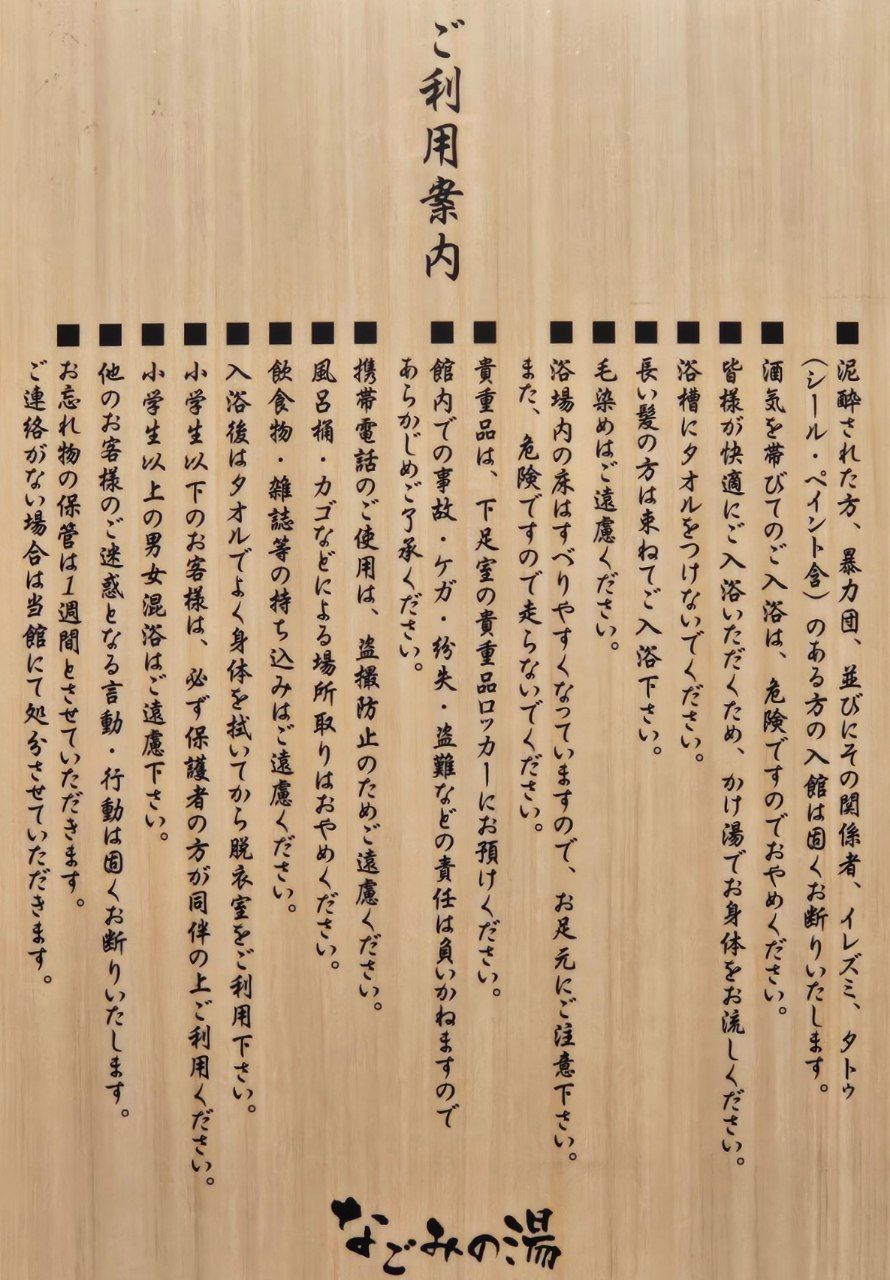 ご利用案内
■泥酔された方、暴力団、並びにその関係者、イレズミ、タトゥ
(シール・ペイント含)のある方の入館は固くお断りいたします。
■酒気を帯びてのご入浴は、危険ですのでおやめください。
■皆様が快適にご入浴いただくため、かけ湯でお身体をお流しください。
■浴槽にタオルをつけないでください。
■長い髪の方は束ねてご入浴下さい。
■毛染めはご遠慮ください。
■浴場内の床はすべりやすくなっていますので、お足元にご注意下さい。
また、危険ですので走らないでください。
■貴重品は、下足室の貴重品ロッカーにお預けください。
■館内での事故・ケガ・紛失・盗難などの責任は負いかねますので
あらかじめご了承ください。
■携帯電話のご使用は、盗撮防止のためご遠慮ください。
■風呂桶・カゴなどによる場所取りはおやめください。
■飲食物・雑誌等の持ち込みはご遠慮ください。
■入浴後はタオルでよく身体を拭いてから脱衣室をご利用下さい。
■小学生以下のお客様は、必ず保護者の方が同伴の上ご利用ください。
■小学生以上の男女混浴はご遠慮下さい。
■他のお客様のご迷惑となる言動・行動は固くお断りいたします。
■お忘れ物の保管は1週間とさせていただきます。
ご連絡がない場合は当館にて処分させていただきます。
なごみの湯